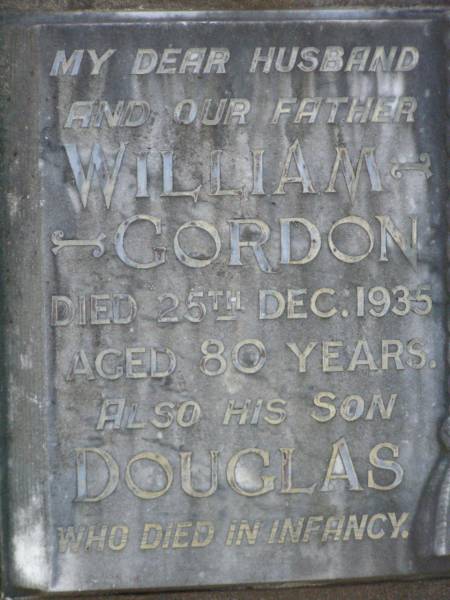 MY DEAR HUSBAND
AND OUR FATHER
WILLIAM
GORDON
DIED 25TH DEC. 1935
AGED 80 YEARS.
ALSO HIS SON
DOUGLAS
WHO DIED IN INFANCY.